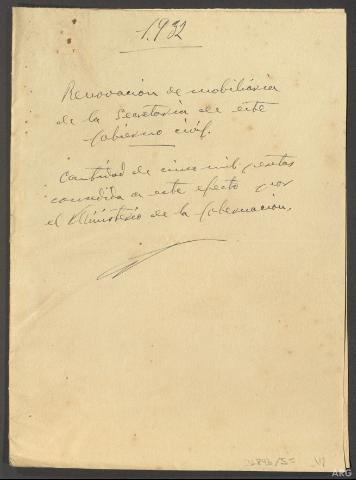 1.932
Renovación de mobiliario
de la Secretaría de este
Gobierno civil.
Cantidad de cinco mil pesetas
concedida a este efecto por
el Ministerio de la Gobernación.
ARG